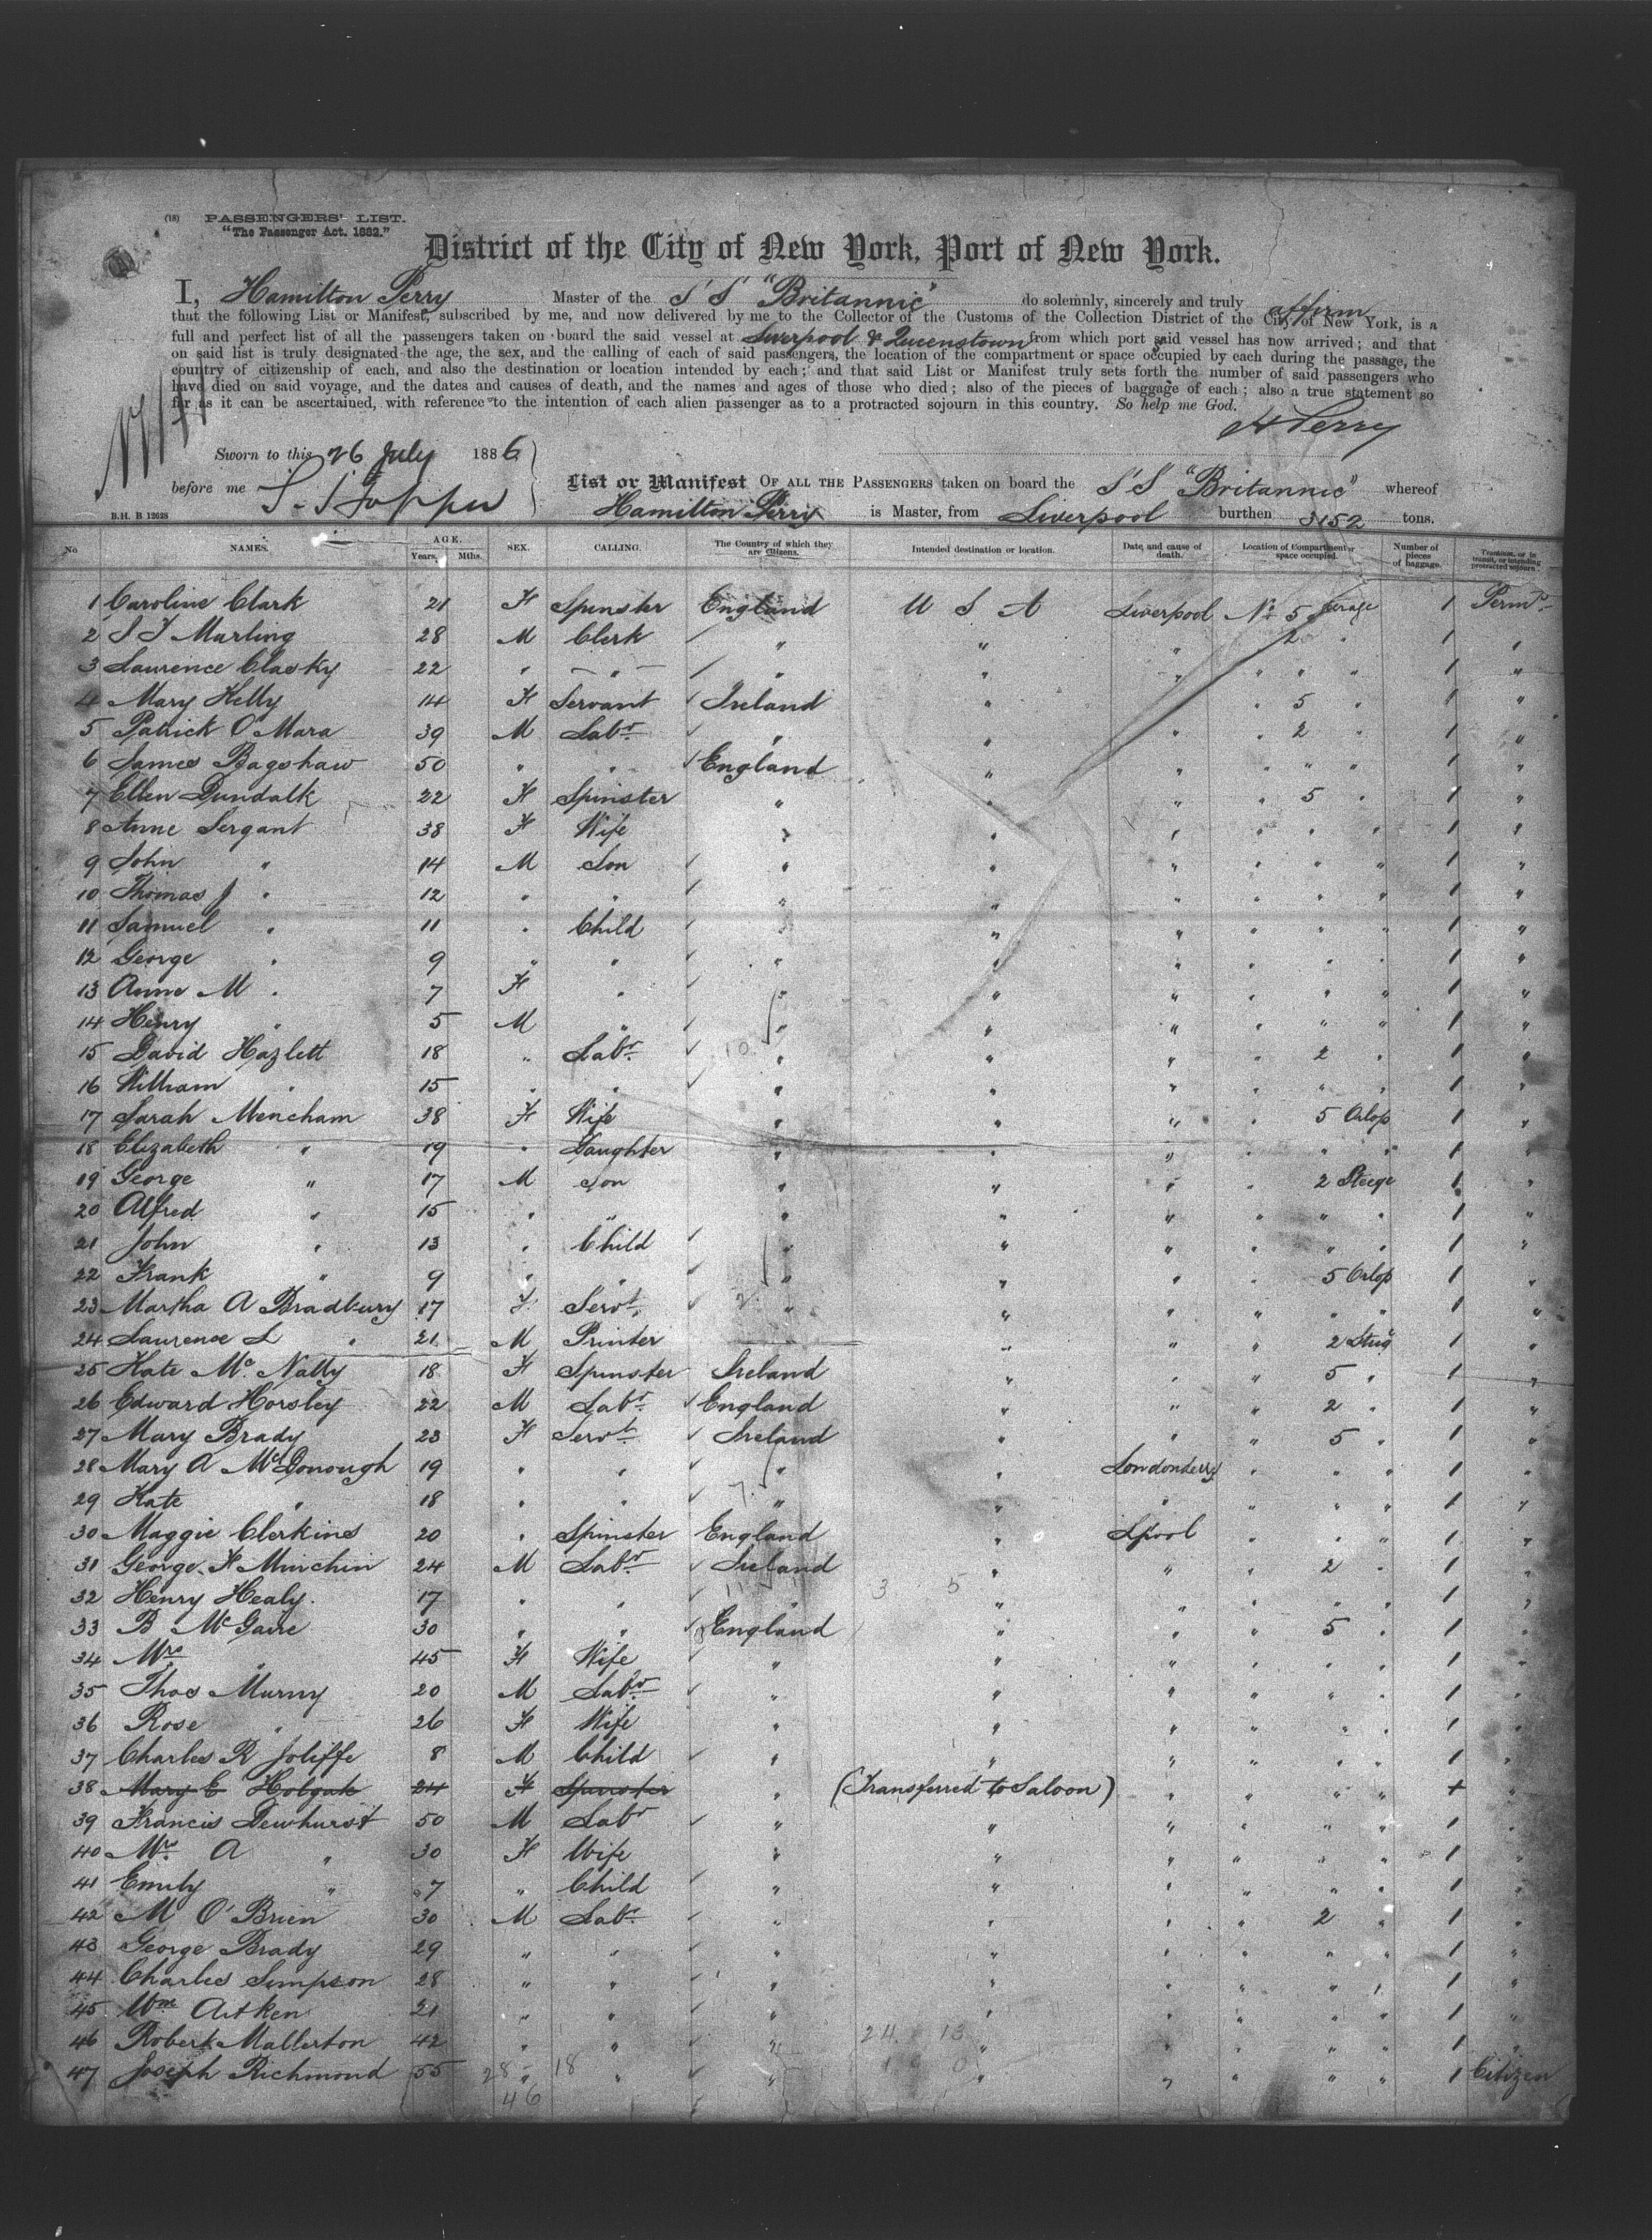 (18) PASSENGERS' LIST.
"The Passenger Act. 1882."
District of the City of New York, Port of New York.
I, Hamilton Perry Master of the S S "Britannic" do solemnly, sincerely and truly affirm
that the following List or Manifest, subscribed by me, and now delivered by me to the Collector of the Customs of the Collection District of the City of New York, is a
full and perfect list of all the passengers taken on board the said vessel at Liverpool & Queenstown from which port said vessel has now arrived; and that
on said list is truly designated the age, the sex, and the calling of each of said passengers, the location of the compartment or space occupied by each during the passage, the
country of citizenship of each, and also the destination or location intended by each; and that said List or Manifest truly sets forth the number of said passengers who
have died on said voyage, and the dates and causes of death, and the names and ages of those who died; also of the pieces of baggage of each; also a true statement so
far as it can be ascertained, with reference to the intention of each alien passenger as to a protracted sojourn in this country. So help me God.
H Perry
Sworn to this 26 July 1886
before me
List or Manifest OF ALL THE PASSENGERS taken on board the S S "Britannic" whereof
B.H. B 12628
Hamilton Perry is Master, from Liverpool burthen 3152 tons.
No NAMES. AGE. Years. Mths. SEX. CALLING. The Country of which they are Citizens. Intended destination or location. Date and cause of death. Location of Compartment or space occupied. Number of pieces of baggage. Transient, or in transit, or intending protracted sojourn
1 Caroline Clark 21 F Spinster England U S A Liverpool No 5 1 Permt
2 S J Marling 28 M Clerk " " " 2 " 1 "
3 Laurence Clasky 22 " " " " " " " " 1 "
4 Mary Kelly 14 F Servant Ireland " " " 5 " 1 "
5 Patrick O'Mara 39 M Labr " " " " 2 " 1 "
6 James Bagshaw 50 " " England " " " " " 1 "
7 Ellen Dundalk 22 F Spinster " " " " 5 " 1 "
8 Anne Sergant 38 F Wife " " " " " " 1 "
9 John " 14 M Son " " " " " " 1 "
10 Thomas J " 12 " " " " " " " " 1 "
11 Samuel " 11 " Child " " " " " " 1 "
12 George " 9 " " " " " " " " 1 "
13 Anne M " 7 F " " " " " " " 1 "
14 Henry " 5 M " " " " " " " 1 "
15 David Hazlett 18 " Labr " " " " 2 " 1 "
16 William " 15 " " " " " " " " 1 "
17 Sarah Mencham 38 F Wife " " " " 5 Orlop 1 "
18 Elizabeth " 19 " Daughter " " " " " " 1 "
19 George " 17 M Son " " " " 2 Steege 1 "
20 Alfred " 15 " " " " " " " " 1 "
21 John " 13 " Child " " " " " " 1 "
22 Frank " 9 " " " " " " 5 Orlop 1 "
23 Martha A Bradbury 17 F Servt " " " " " " 1 "
24 Laurence L " 21 M Printer " " " 2 Steeg 1 "
25 Kate Mc Nally 18 F Spinster Ireland " " " 5 " 1 "
26 Edward Horsley 22 M Labr England " " " 2 " 1 "
27 Mary Brady 23 F Servt Ireland " " " 5 " 1 "
28 Mary A McDonough 19 " " " " Londonderry " " " 1 "
29 Kate " 18 " " " " " " " " 1 "
30 Maggie Clerkins 20 " Spinster England " Lpool " " " 1 "
31 George F Minchin 24 M Labr Ireland " " " 2 " 1 "
32 Henry Healy 17 " " " " " " " " 1 "
33 B McGuire 30 " " England " " " 5 " 1 "
34 Mrs " 45 F Wife " " " " " " 1 "
35 Thos Murny 20 M Labr " " " " " " 1 "
36 Rose " 26 F Wife " " " " " " 1 "
37 Charles R Joliffe 8 M Child " " " " " " 1 "
38 Mary E Holgate 24 F Spinster " (Transferred to Saloon) " " " " + "
39 Francis Dewhurst 50 M Labr " " " " " " 1 "
40 Mrs A " 30 F Wife " " " " " " 1 "
41 Emily " 7 " Child " " " " " " 1 "
42 M O'Brien 30 M Labr " " " " 2 " 1 "
43 George Brady 29 " " " " " " " " 1 "
44 Charles Simpson 28 " " " " " " " " 1 "
45 Wm Aitken 21 " " " " " " " " 1 "
46 Robert Mallerton 42 " " " " " " " " 1 "
47 Joseph Richmond 55 " " " " " " " " 1 Citizen
28 18
46
24 13